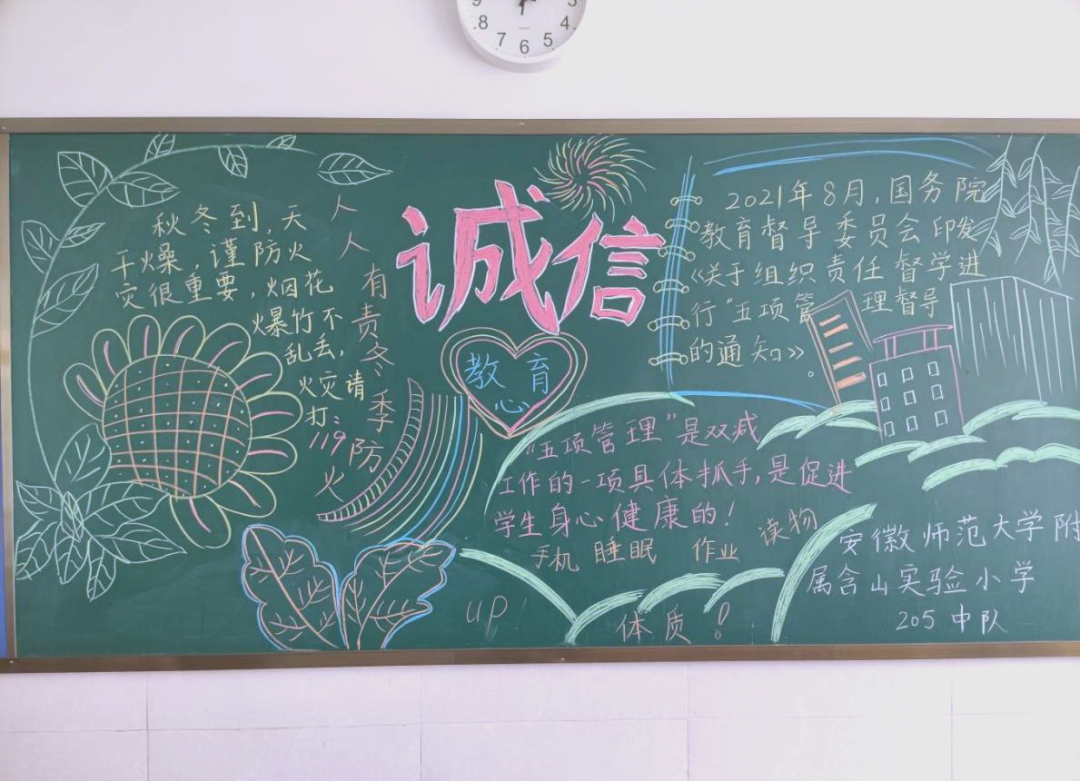 9
8
7
6
5
4
3
秋冬到,天
干燥 谨防火
灾很重要,烟花
爆竹不
乱丢,
火灾请
打:
119
人人有责冬季防火
诚信
教育
心
2021年8月,国务院
教育督导委员会印发
《关于组织责任督学进
行“五项管理督导
的通知》。
“五项管理”是双减
工作的一项具体抓手,是促进
学生身心健康的!
手机 睡眠 作业 读物
体质!
up!
安徽师范大学附
属含山实验小学
205中队